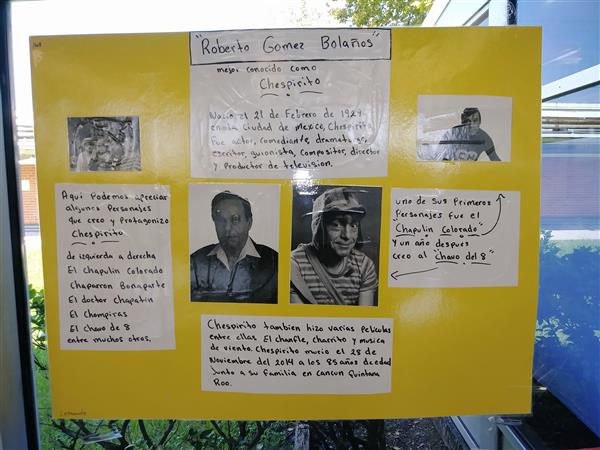 "Roberto Gomez Bolaños"
mejor conocido como
Chespirito
Nacio el 21 de Febrero de 1929
en la Ciudad de mexico, Chespirito
Fue actor, comediante, dramaturgo,
escritor, guionista, compositor, director
y productor de television.
Aqui Podemos apreciar
algunos Personajes
que creo y Protagonizo
Chespirito
de izquierda a derecha
El chapulin Colorado
Chaparron Bonaparte
El doctor chapatin
El chompiras
El chavo de 8
entre muchos otros.
uno de sus Primeros
Personajes fue el
"Chapulin Colorado"
y un año despues
creo al "Chavo del 8"
Chespirito tambien hizo varias peliculas
entre ellas El chanfle, charrito y musica
de viento. Chespirito murio el 28 de
Noviembre del 2014 a los 85 años de edad
Junto a su familia en Cancun Quintana
Roo.